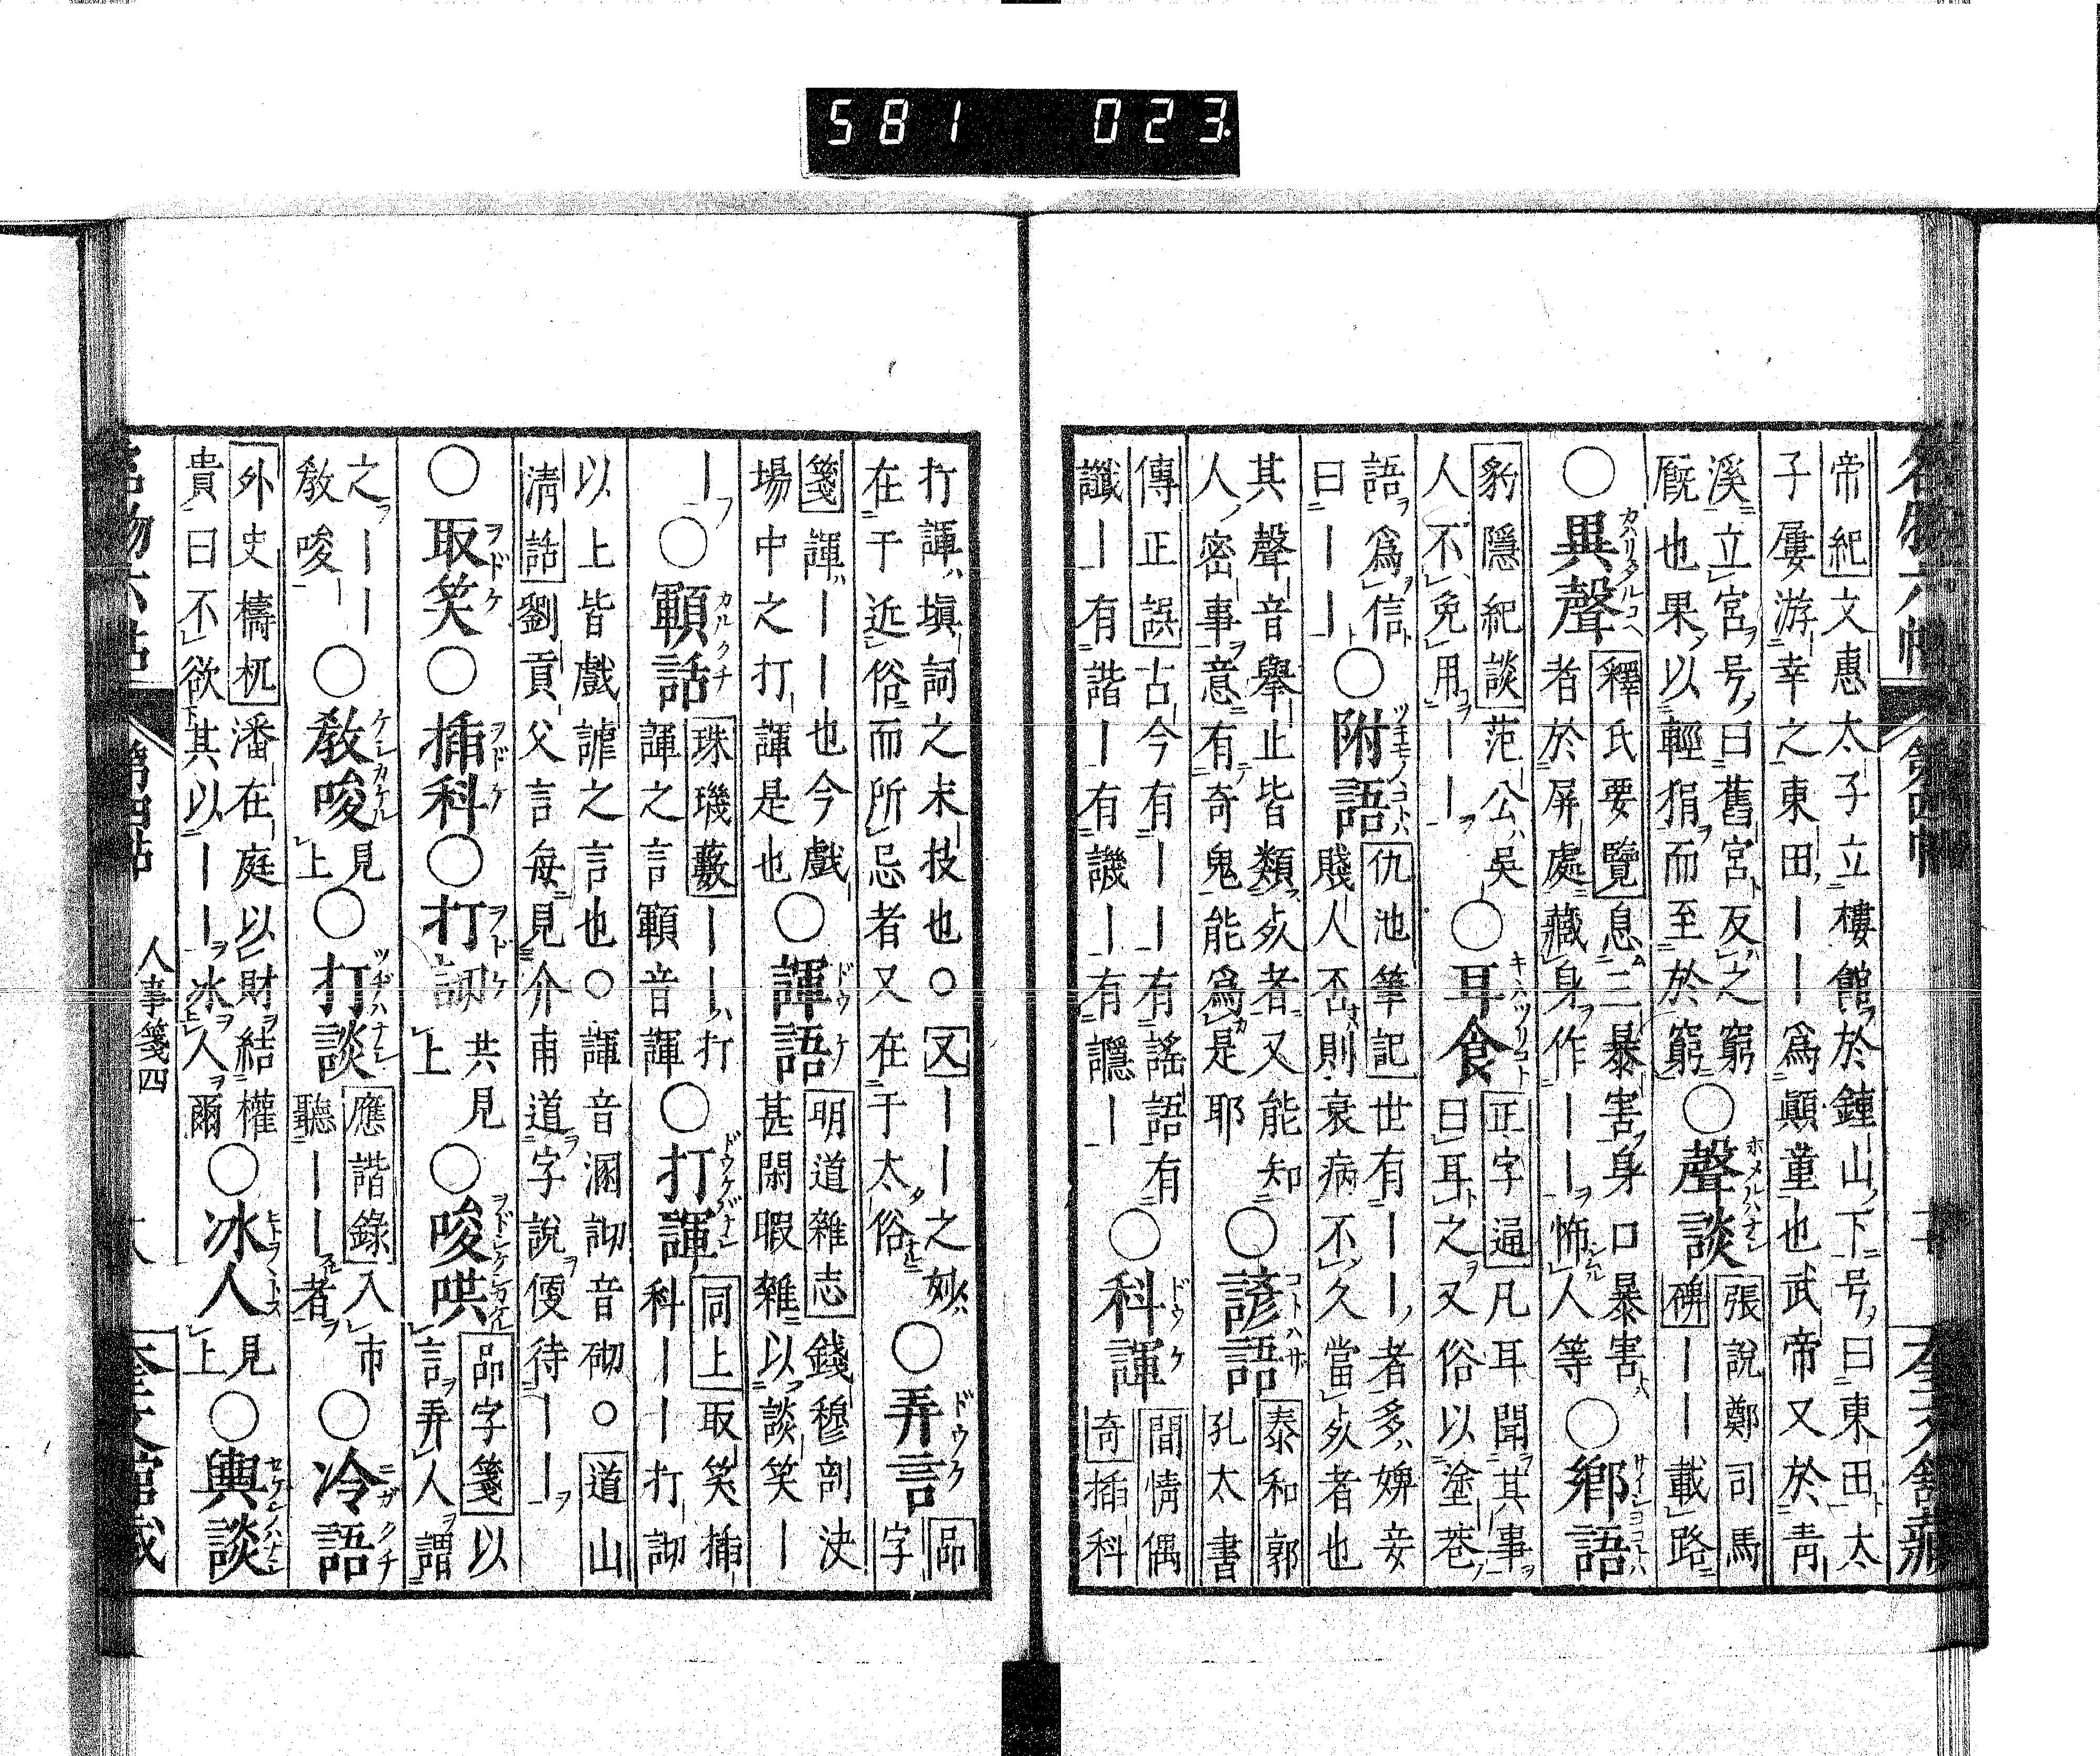 581 023
帝紀文惠太子立樓館於鍾山下号曰東田太
子屢游幸之東田｜｜爲顚董也武帝又於靑
溪立宮号曰舊宮反之窮○聲談張說鄭司馬
碑｜｜載路
厩也果以輕狷而至於窮
○異聲釋氏要覽息三暴害身口暴害
者於屏處藏身作｜｜怖人等○鄉語
豹隱紀談范公吳
人不免用｜｜○耳食正字通凡耳聞其事
曰耳之又俗以塗巷
語爲信○附語仇池筆記世有｜｜者多婢妾
曰｜｜
賤人否則衰病不久當死者也
其聲音舉止皆類死者又能知
人密事意有奇鬼能爲是耶○諺語泰和郭
孔太書
傳正誤古今有｜｜有謠語有
讖｜有諧｜有譏｜有讔｜○科諢間情偶
奇揷科
打諢塡詞之末技也○又｜｜之妙
在于近俗而所忌者又在于太俗○弄言品
字
箋諢｜｜也今戲
場中之打諢是也○諢語明道雜志錢穆剖決
甚閑暇雜以談笑｜
｜○顐話珠璣藪｜｜打
諢之言顐音諢○打諢同上取笑揷
科｜｜打訓
以上皆戲謔之言也○諢音溷 音砌○道山
淸話劉貢父言每見介甫道字說便待｜｜
○取笑○揷科○打 共見
上○唆哄品字箋以
言弄人謂
之｜｜
敎唆○敎唆見
上○打談應諧錄入市
聽｜｜者○冷語
外史檮杌潘在庭以財結權
貴曰不欲其以｜｜冰人爾○冰人見
上○輿談
名物六帖 第四帖 人事箋四 奎文館藏